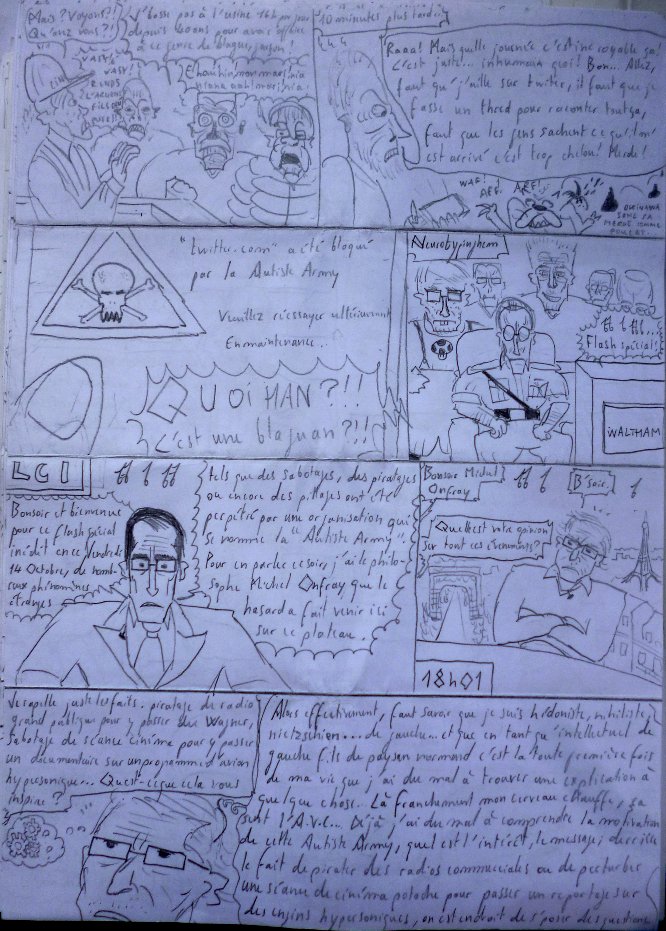 Mais? Voyons?!
Qu'avez vous?!
J'bosse pas à l'usine 16h par jour
depuis 200ans pour avoir affaire
à ce genre de blague, fasion!
VAS Y
VAS Y
RENDS
L'ARGENT
FILS DE
10 minutes plus tard..
Raaa! Mais quelle journée c'est incroyable ça,
c'est juste... inhumana quoi! Bon... Allez,
faut qu'j'aille sur twitter, il faut que je
fasse un thred pour raconter tout ça,
faut que les gens sachent ce qui t'on
est arrivé c'est trop chelou! Merde!
WAF!
ARF..
ARF..!
OKINAWA
SONG DA
MEROU
"twitter.com" a été bloqué
par la Autiste Army
Veuillez réessayer ultérieurement
En maintenance...
QUOI HAN?!!
C'est une blaguan?!!
Flash spécial!
WALTHAM
LCI
Bonsoir et bienvenue
pour ce flash spécial
inédit en ce Vendredi
14 Octobre, de nomb-
eux phénomènes
étranges
tels que des sabotages, des piratages
ou encore des pillages ont été
perpétré par une organisation qui
se nomme la "Autiste Army".
Pour en parler ce soir, j'ai le philo-
sophe Michel Onfray que le
hasard a fait venir ici
sur ce plateau.
Bonsoir Michel
Onfray
B'soir.
Quelle est votre opinion
sur tout ces évènements?
18h01
Je rapelle juste les faits: piratage de radio
grand publique pour y passer du Wagner,
Sabotage de séance cinéma pour y passer
un documentaire sur un programme d'avion
hypersonique... Qu'est-ce que cela vous
inspire?
Alors effectivement, faut savoir que je suis hédoniste, nihiliste,
nietzschien... de gauche... et que en tant qu'intellectuel de
gauche fils de paysan normand c'est la toute première fois
de ma vie que j'ai du mal à trouver une explication à
quelque chose.. Là franchement mon cerveau chauffe, ça
sent l'A.V.C... Déjà j'ai du mal à comprendre la motivation
de cette Autiste Army, quel est l'intérêt, le message derrière
le fait de pirater des radios commerciales ou de perturber
une séance de cinéma potoche pour passer un reportage sur
des engins hypersoniques, on est en droit de s'poser des questions